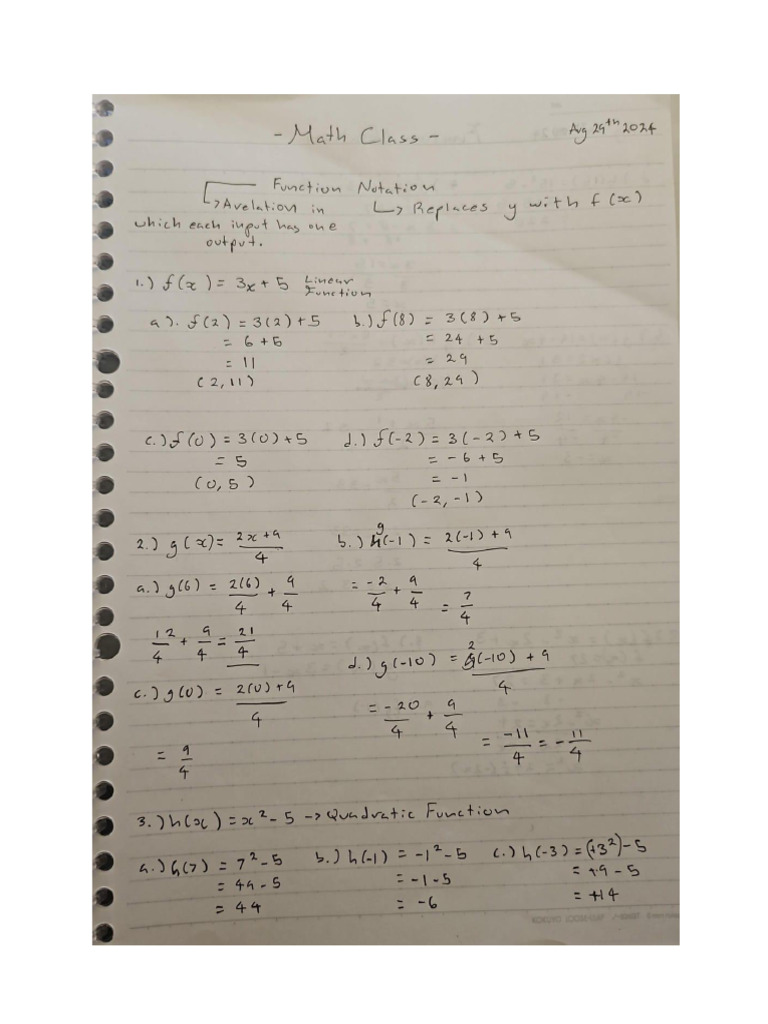 - Math Class -
Aug 29th 2024
Function Notation
↳ A relation in which each input has one output.
↳ Replaces y with f(x)
1.) f(x) = 3x + 5 Linear Function
a). f(2) = 3(2) + 5
= 6 + 5
= 11
(2, 11)
b.) f(8) = 3(8) + 5
= 24 + 5
= 29
(8, 29)
c.) f(0) = 3(0) + 5
= 5
(0, 5)
d.) f(-2) = 3(-2) + 5
= -6 + 5
= -1
(-2, -1)
2.) g(x) = (2x + 9)/4
a.) g(6) = 2(6)/4 + 9/4
12/4 + 9/4 = 21/4
b.) g(-1) = (2(-1) + 9)/4
= -2/4 + 9/4
= 7/4
c.) g(0) = (2(0) + 9)/4
= 9/4
d.) g(-10) = (2(-10) + 9)/4
= -20/4 + 9/4
= -11/4 = -11/4
3.) h(x) = x² - 5 → Quadratic Function
a.) h(7) = 7² - 5
= 49 - 5
= 44
b.) h(-1) = -1² - 5
= -1 - 5
= -6
c.) h(-3) = (+3²) - 5
= +9 - 5
= +14